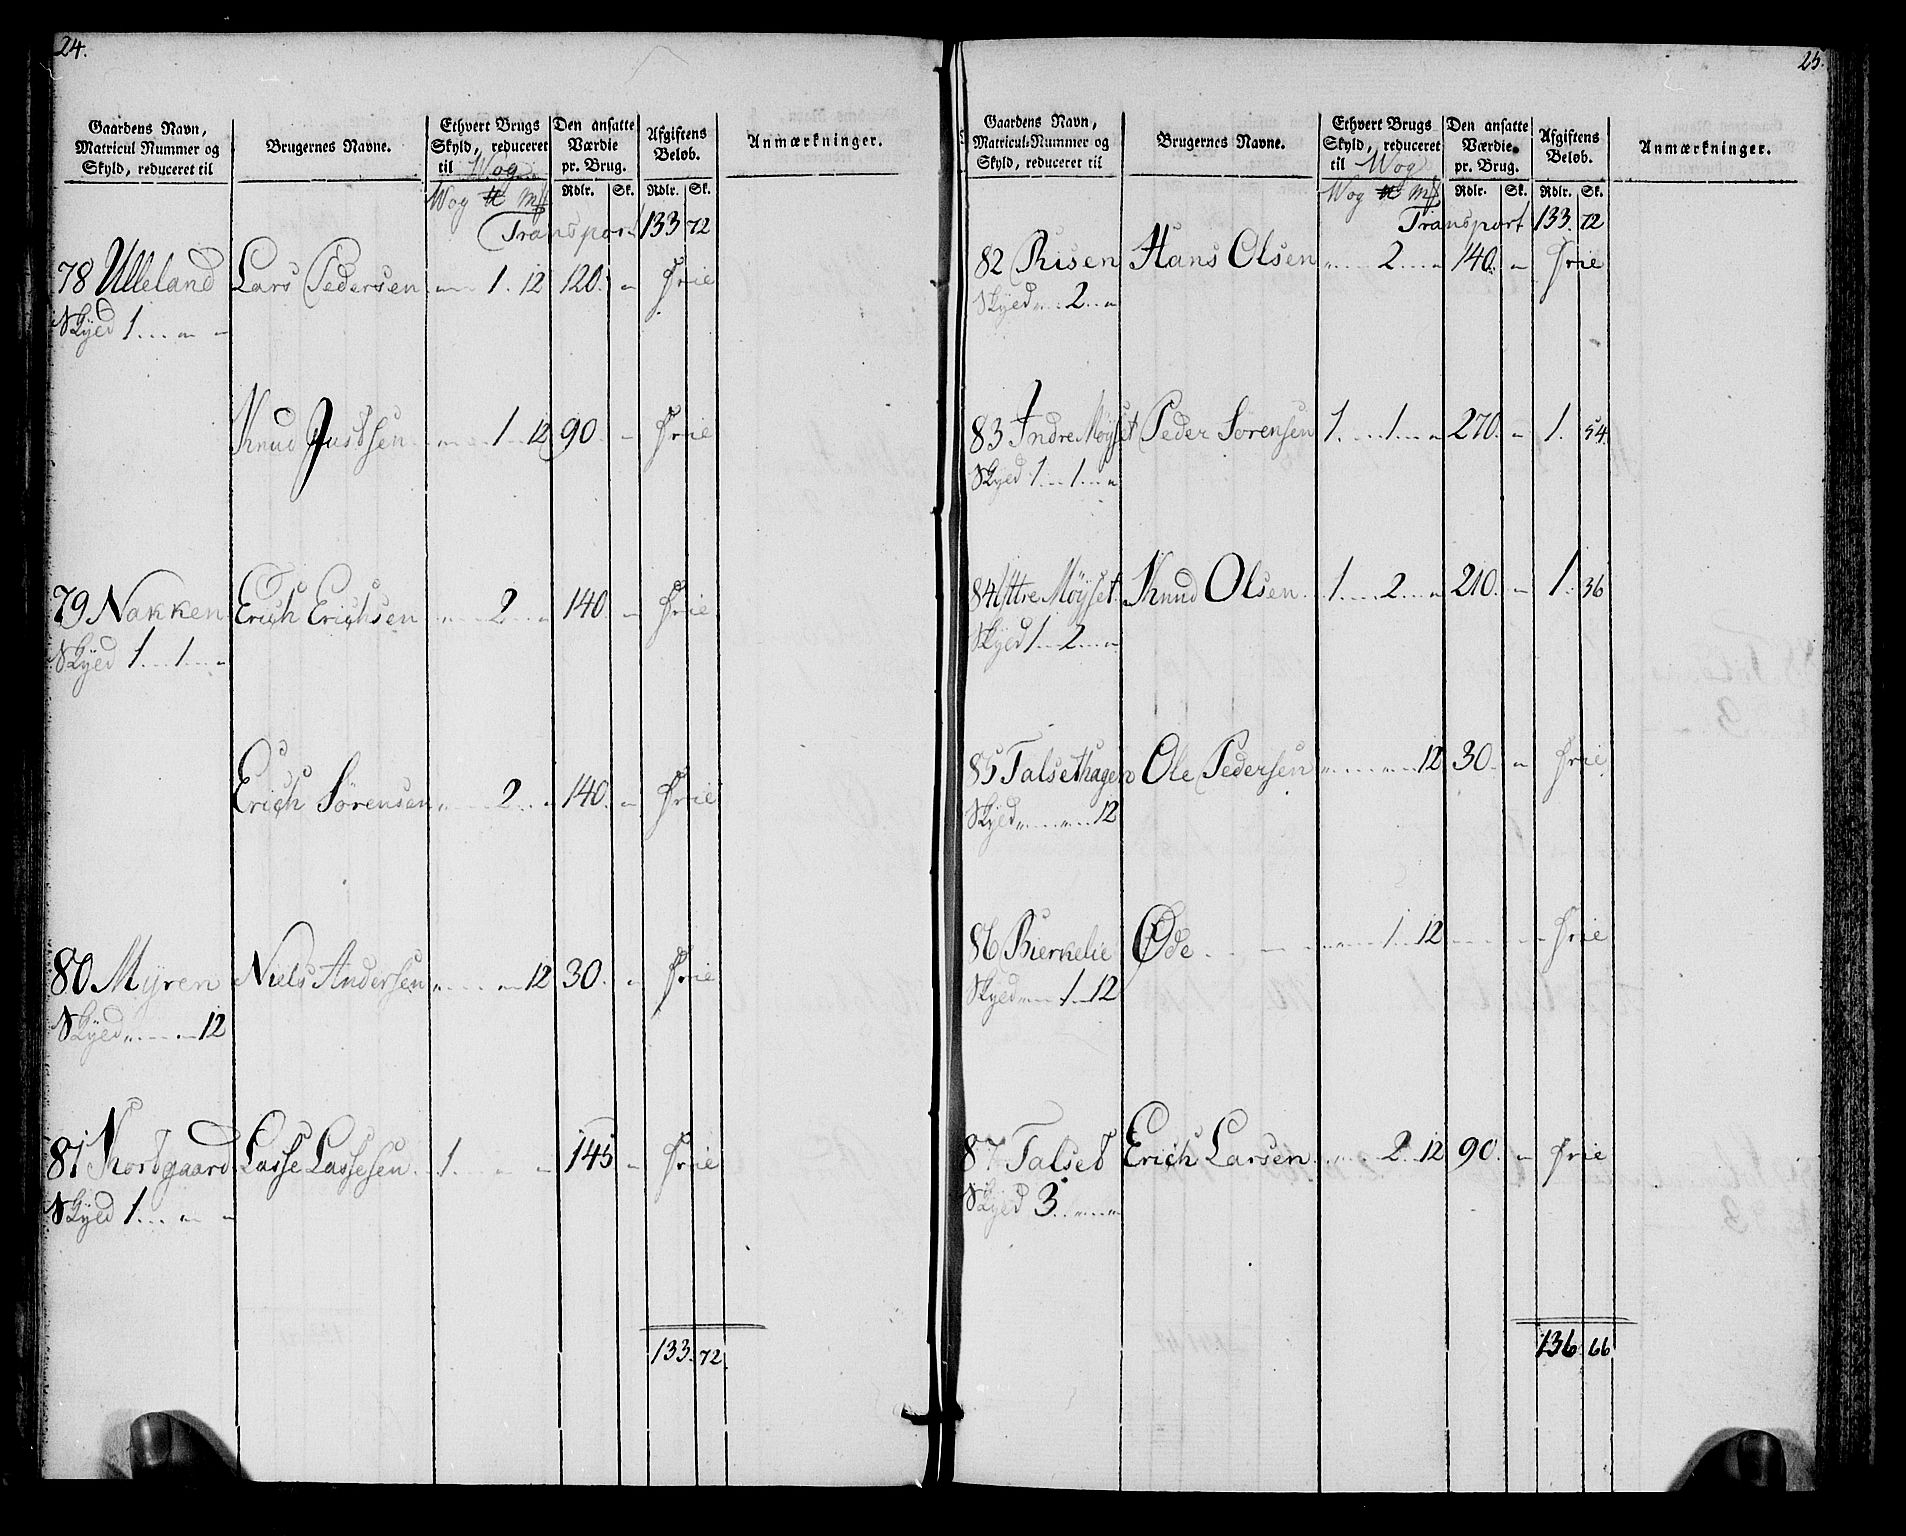 24.
Gaardens Navn, Matricul Nummer og Skyld, reduceret til
Brugernes Navne.
Ethvert Brugs Skyld, reduceret til Wog
Den ansatte Værdie pr. Brug.
Afgiftens Beløb.
Anmærkninger.
Wog Mk Rdlr. Sk. Rdlr. Sk.
Transport 133 72
78 Ulleland Lars Pedersen 1. 12 120. " frie
Skyed 1....
Knud Justsen 1 12 90 " frie
79 Nakken Erich Erichsen 2 140 " frie
Skyed 1...1...
Erich Sørensen 2 140. " frie
80 Myren Niels Andersen 12 30. " frie
Skyed 12
81 Kortgaard Lasse Lassesen 1. 145 " frie
Skyed 1...
133. 72
25.
Gaardens Navn, Matricul-Nummer og Skyld, reduceret til
Brugernes Navne.
Ethvert Brugs Skyld, reduceret til Wog
Den ansatte Værdie pr. Brug.
Afgiftens Beløb.
Anmærkninger.
Wog Mk Rdlr. Sk. Rdlr. Sk.
Transport 133. 72
82 Risen Hans Olsen 2 140. " frie
Skyed 2
83 Indre Møyset Peder Sørensen 1 1 270. " 1. 54
Skyed 1...1...
84 Ittre Møyset Knud Olsen 1 2 210. " 1. 36
Skyed 1...2...
85 Talsethagen Ole Pedersen 12 30. " frie
Skyed 12
86 Bierkelie Øde 1 12 frie
Skyed 1 12
87 Talset Erich Larsen 2 12 90. " frie
Skyed 3
136. 66